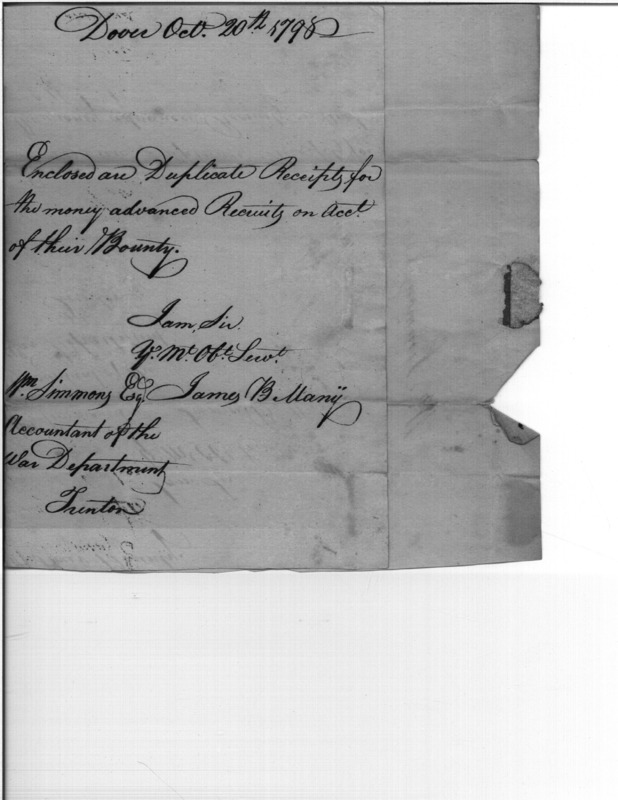 Dover Oct. 20th 1798
Enclosed are Duplicate Receipts for
the money advanced Recruits on Acct.
of their Bounty.
I am, Sir.
Yr. Mt. Obt. Servt.
Wm. Simmons Esq. James B Many
Accountant of the
War Department
Trenton